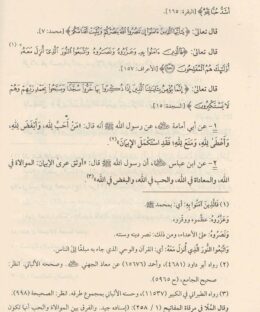 أَشَدُّ حُبًّا لِلَّهِ﴾ [البقرة: ١٦٥].
قال تعالى: ﴿يَا أَيُّهَا الَّذِينَ آمَنُوا إِن تَنصُرُوا اللَّهَ يَنصُرْكُمْ وَيُثَبِّتْ أَقْدَامَكُمْ﴾ [محمد: ٧].
قال تعالى: ﴿فَالَّذِينَ آمَنُوا بِهِ وَعَزَّرُوهُ وَنَصَرُوهُ وَاتَّبَعُوا النُّورَ الَّذِي أُنزِلَ مَعَهُ
أُولَئِكَ هُمُ الْمُفْلِحُونَ﴾(١) [الأعراف: ١٥٧].
قال تعالى: ﴿إِنَّمَا يُؤْمِنُ بِآيَاتِنَا الَّذِينَ إِذَا ذُكِّرُوا بِهَا خَرُّوا سُجَّدًا وَسَبَّحُوا بِحَمْدِ رَبِّهِمْ وَهُمْ
لَا يَسْتَكْبِرُونَ﴾ [السجدة: ١٥].
١ - عن أبي أمامة ﷺ، عن رسول الله ﷺ أنه قال: «مَنْ أَحَبَّ لِلَّهِ، وَأَبْغَضَ لِلَّهِ،
وَأَعْطَى لِلَّهِ، وَمَنَعَ لِلَّهِ، فَقَدِ اسْتَكْمَلَ الْإِيمَانَ»(٢)
٢ - عن ابن عباس، أن رسول الله ﷺ قال: «أوثق عرى الإيمان: الموالاة في
الله، والمعاداة في الله، والحب في الله، والبغض في الله»(٣)
(١) فَالَّذِينَ آمَنُوا بِهِ: أي: بمحمد ﷺ
وَعَزَّرُوهُ: عظموه ووقروه.
وَنَصَرُوهُ: على الأعداء، ومن ذلك: نصر دينه وسنته.
وَاتَّبَعُوا النُّورَ الَّذِي أُنزِلَ مَعَهُ: أي: القرآن والوحي الذي جاء به مبلغًا إلى الناس.
(٢) رواه أبو داود (٤٦٨١)، وأحمد (١٥٦٧٦) عن معاذ الجهني، وصححه الألباني. انظر:
صحيح الجامع، (ح ٥٩٦٥)
(٣) رواه الطبراني في الكبير (١١٥٣٧)، وحسنه الألباني بمجموع طرقه. انظر: الصحيحة (٩٩٨)
قال المُلَّا في مرقاة المفاتيح (١ / ٢٥٨): إسناده جيد. والفرق بين الموالاة والحب أنها تكون